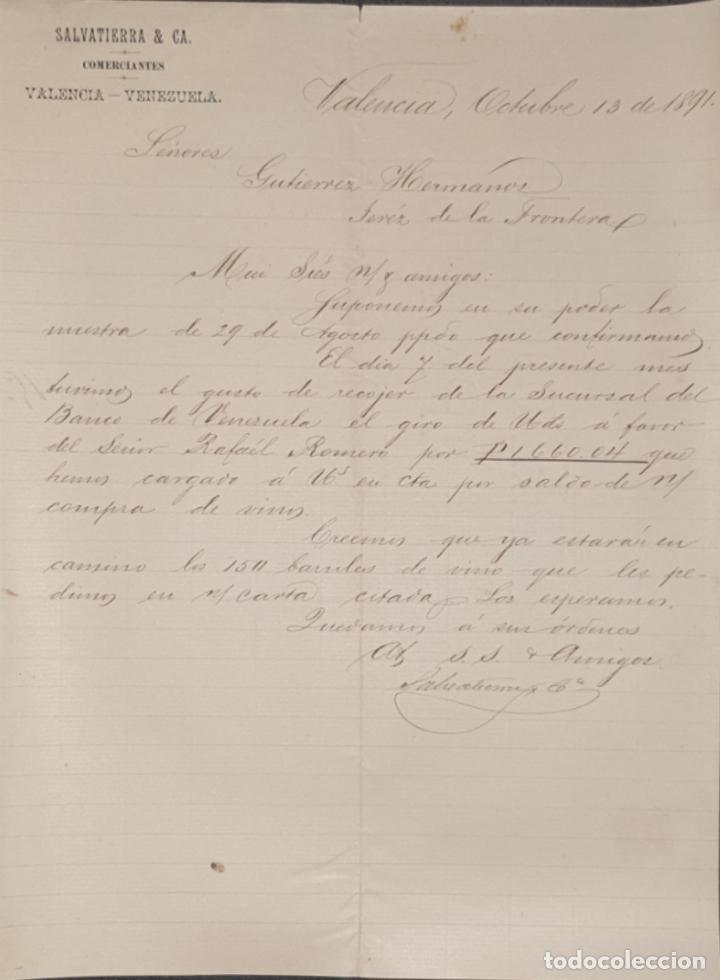 SALVATIERRA & CA.
COMERCIANTES
VALENCIA — VENEZUELA.
Valencia, Octubre 13 de 1891.
Señores
Gutierrez Hermanos
Jeréz de la Frontera
Mui Srés n/ & amigos:
Suponemos en su poder la
nuestra de 29 de Agosto ppdo que confirmamos.
El dia 7 del presente mes
tuvimos el gusto de recojer de la Sucursal del
Banco de Venezuela el giro de Uds á favor
del Señor Rafaél Romero por P1660.04 que
hemos cargado á Us en cta por saldo de n/
compra de vinos.
Creemos que ya estarán en
camino los 150 barriles de vino que les pe-
dimos en n/ carta citada. Los esperamos.
Quedamos á sus órdenes
At S. S. & Amigos.
Salvatierra & Ca
todocoleccion